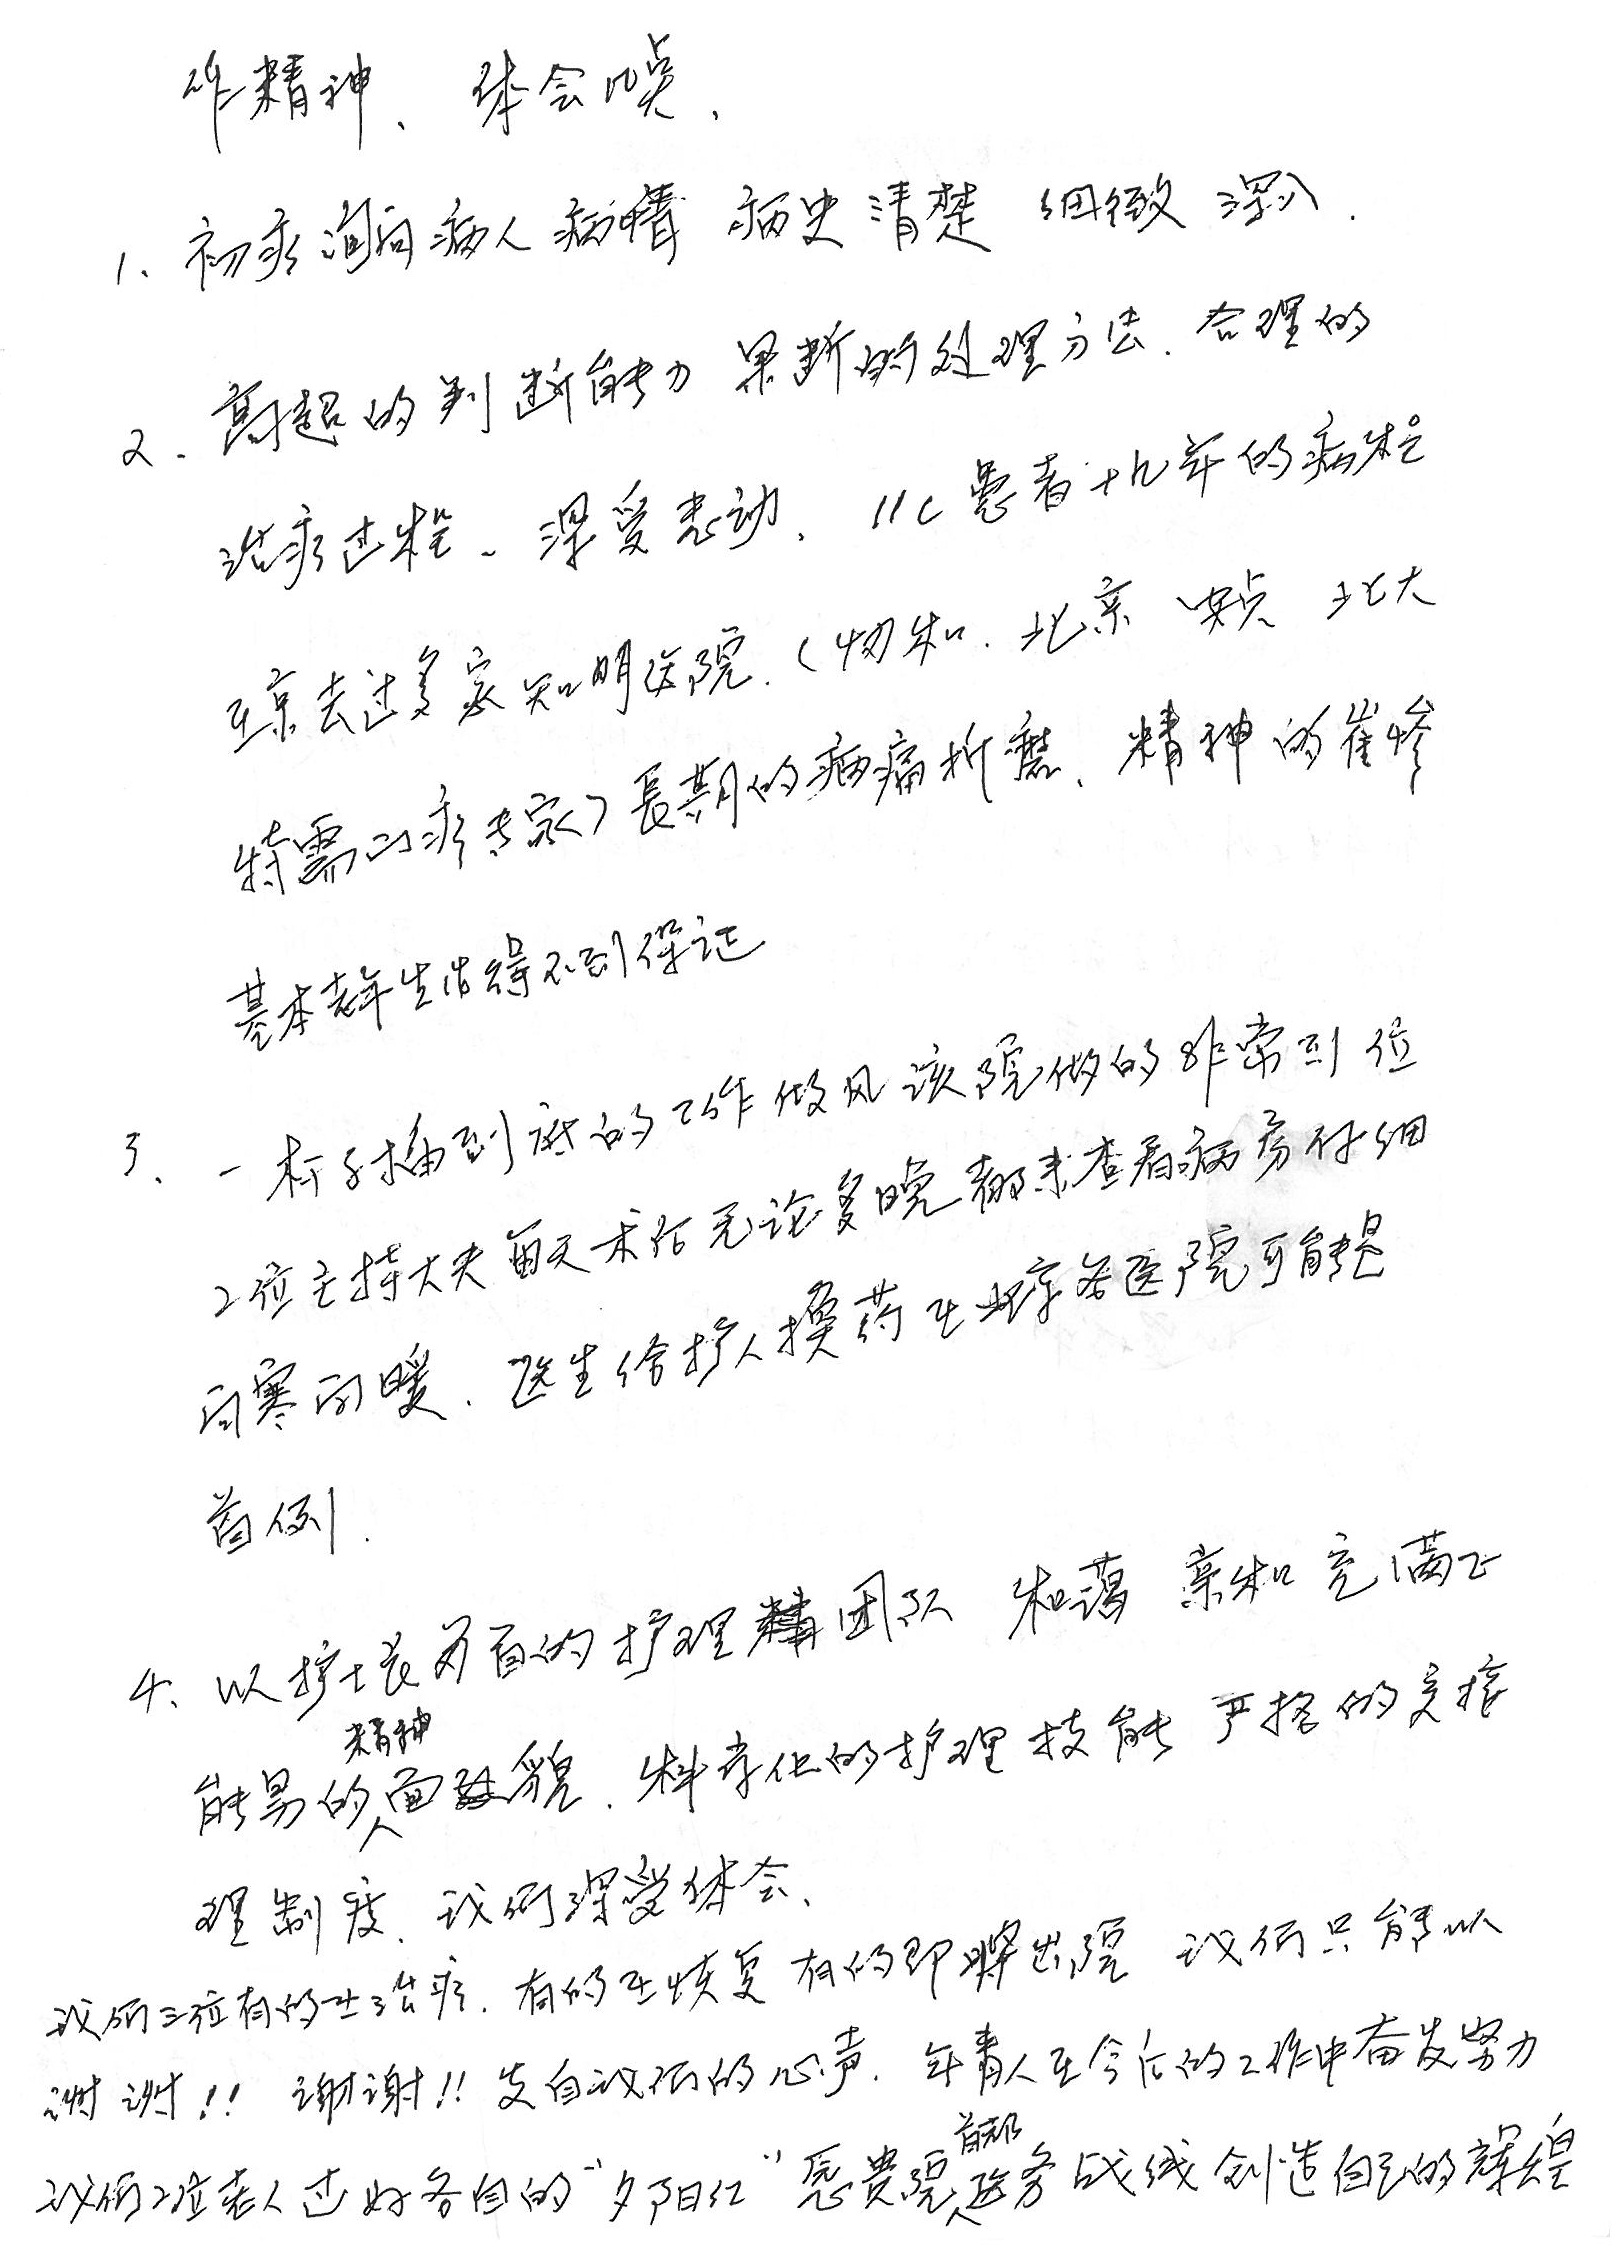 作精神、体会几点、
1、初诊询问病人病情 病史清楚 细致 深入.
2、高超的判断能力 果断的处理方法、合理的
治疗过程、深受感动、11C患者十几年的病程
在京去过多家知明医院.(协和.北京 重点 北大
特需门诊专家)長期的病痛折磨、精神的崔惨
基本老年生活得不到保证
3、一杆子插到底的工作做风该院做的非常到位
2位主持大夫每天术后无论多晚都来查看病房仔细
问寒问暖.医生给护人换药在北京各医院可能是
首例.
4、以护士长为首的护理团队 和蔼 亲和充满正
能易的精神面貌.科学化的护理技能 严格的交接
理制度、我们深受体会、
我们三位有的在治疗.有的在恢复有的即将出院 我们只能以
谢谢!! 谢谢!! 发自我们的心声.年青人在今后的工作中奋发努力
我们2位老人过好各自的“夕阳红”愿贵院首都医务战线创造自己的辉煌